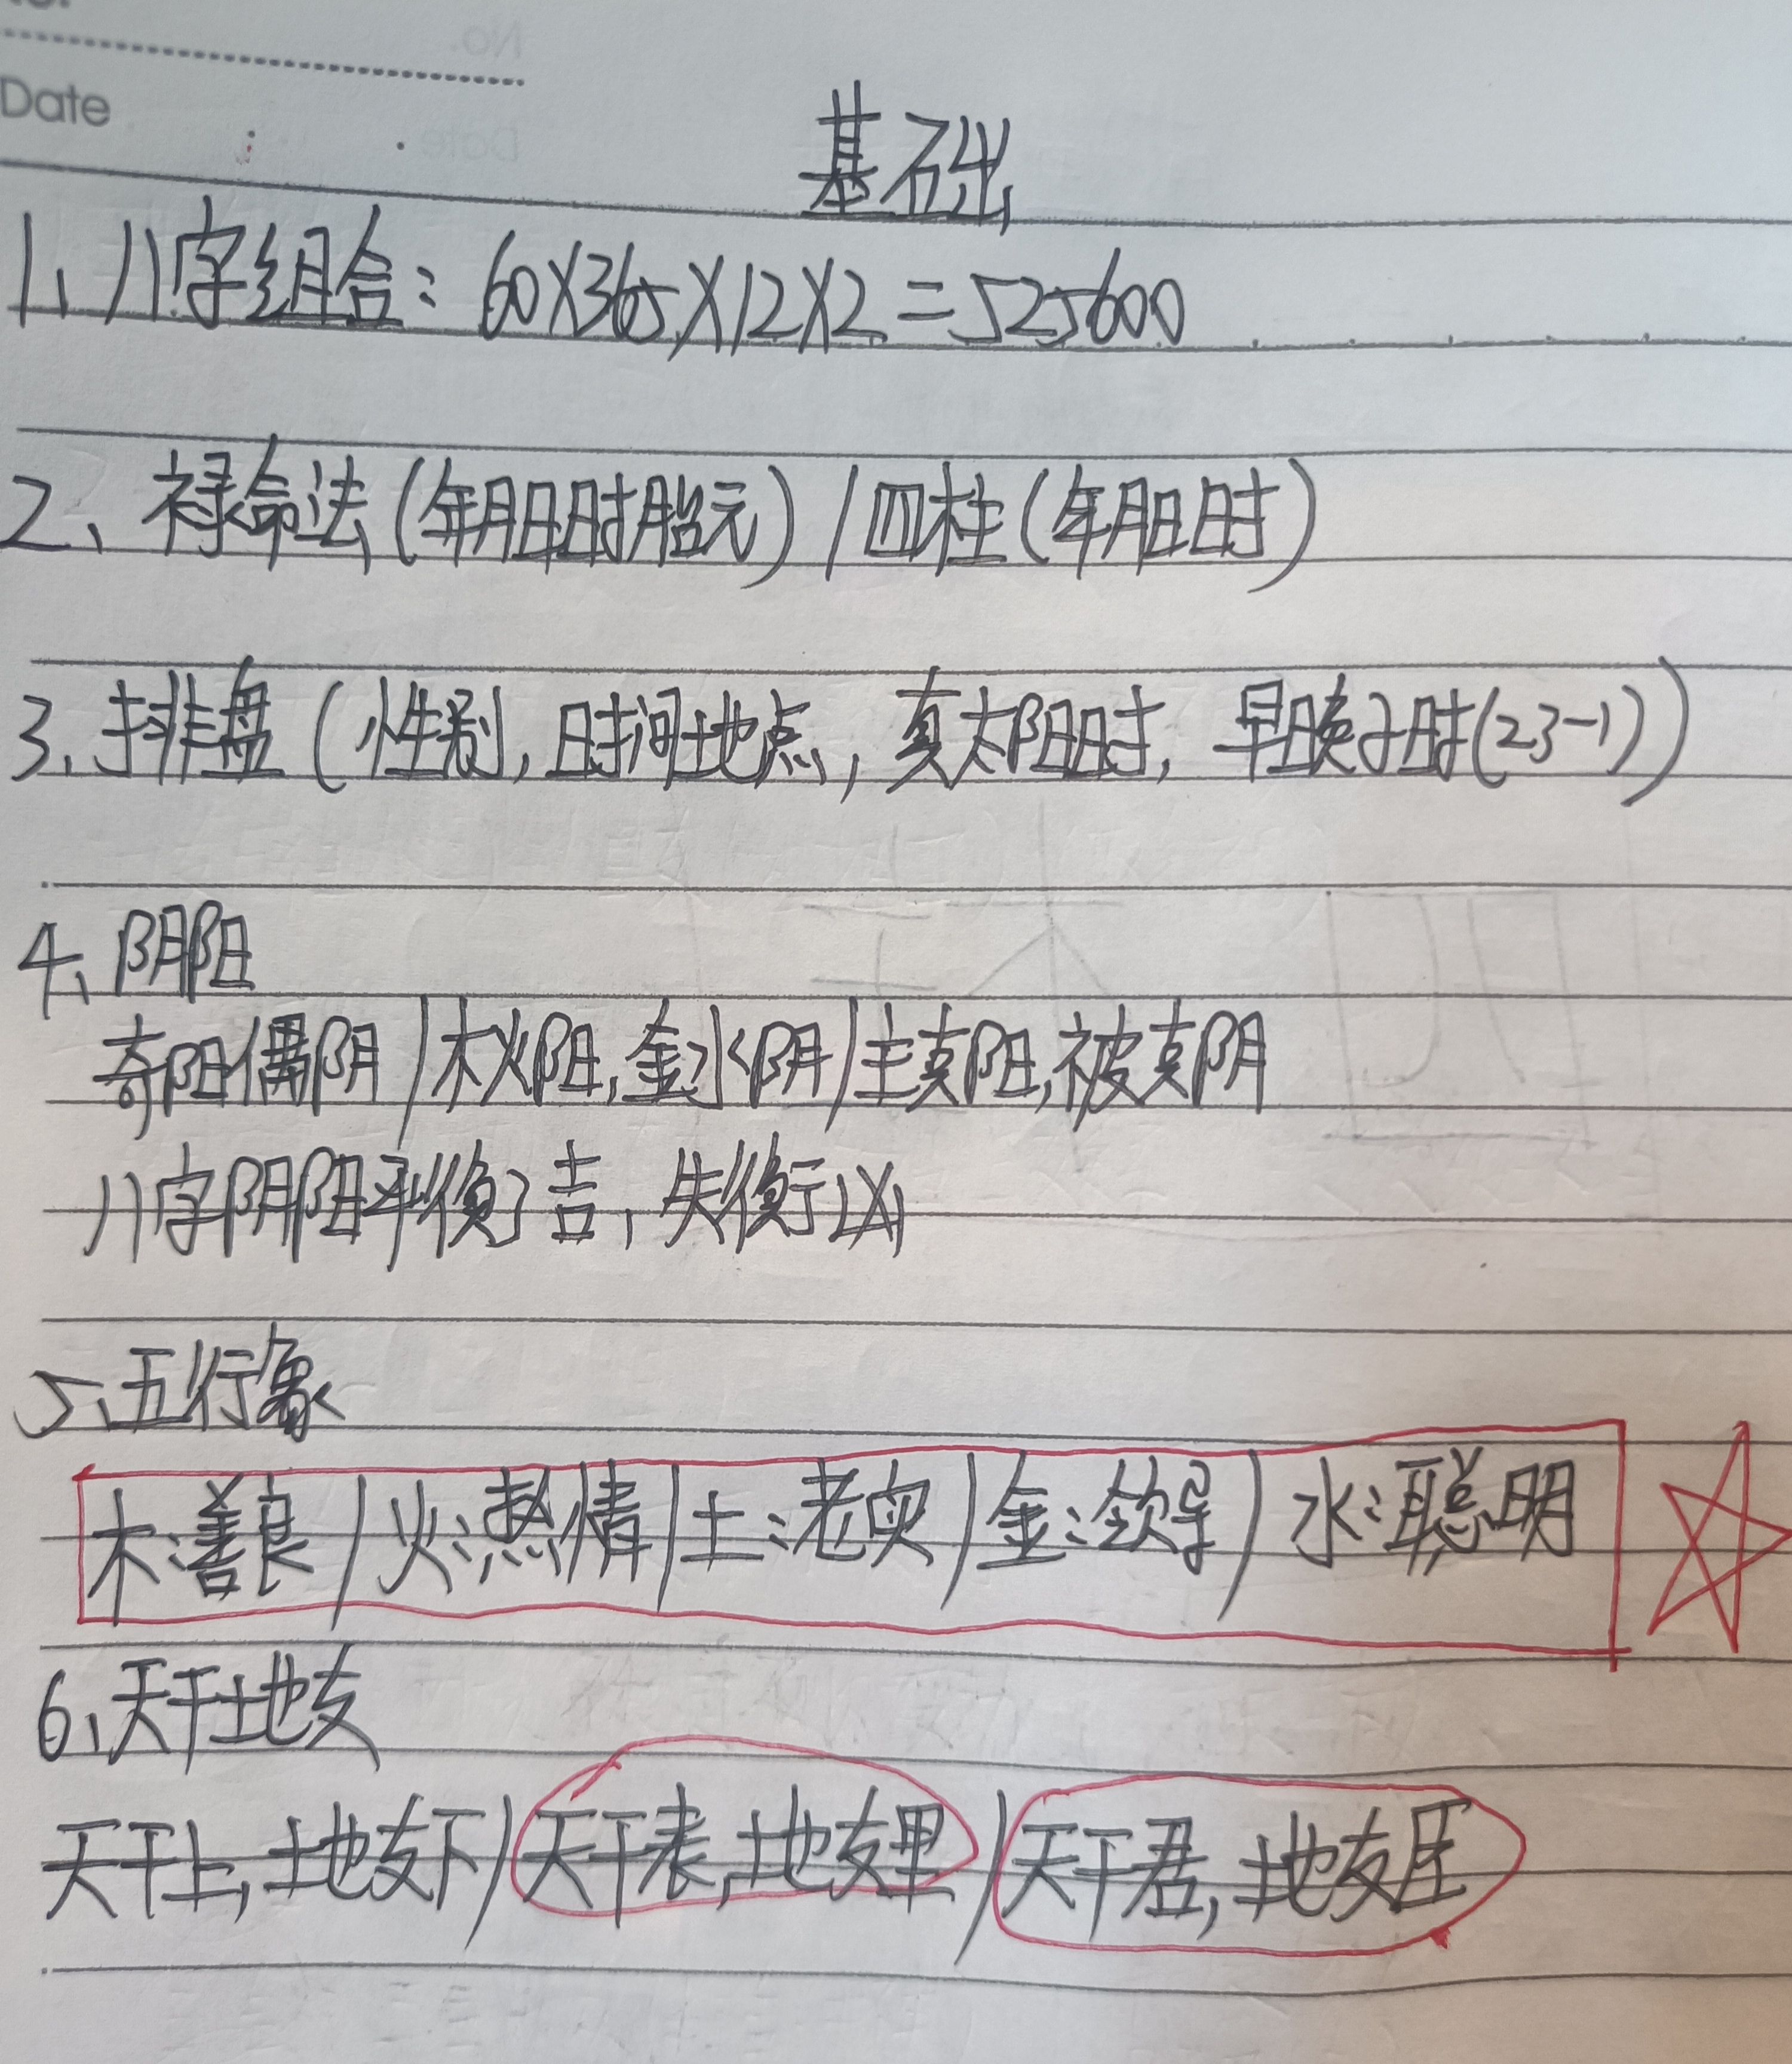 No.
Date
基础
1、八字组合：60X365X12X2=525600
2、禄命法(年月日时胎元)/四柱(年月日时)
3、排盘(性别,时间地点,真太阳时,早晚子时(23-1))
4、阴阳
奇阳偶阴/木火阳,金水阴/主克阳,被克阴
八字阴阳平衡了吉,失衡凶
5、五行象
木:善良/火:热情/土:老实/金:领导/水:聪明
6、天干地支
天干上,地支下/天干表,地支里/天干君,地支臣